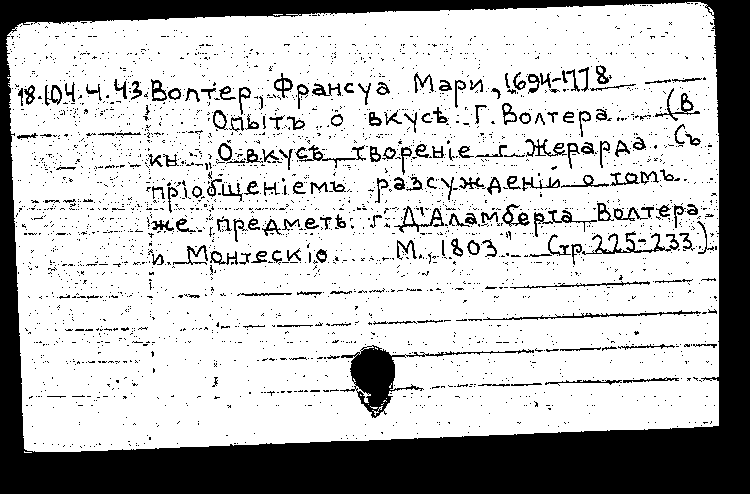 18.104.4.43. Волтер, Франсуа Мари, 1694-1778
Опытъ о вкусѣ. Г. Волтера. (В
кн. „О вкусѣ, творенiе г. Жерарда. Съ
прiобщенiемъ разсужденiй о томъ
же предметѣ г. Д'Аламберта, Волтера
и Монтескiю. М., 1803". Стр. 225-233.)